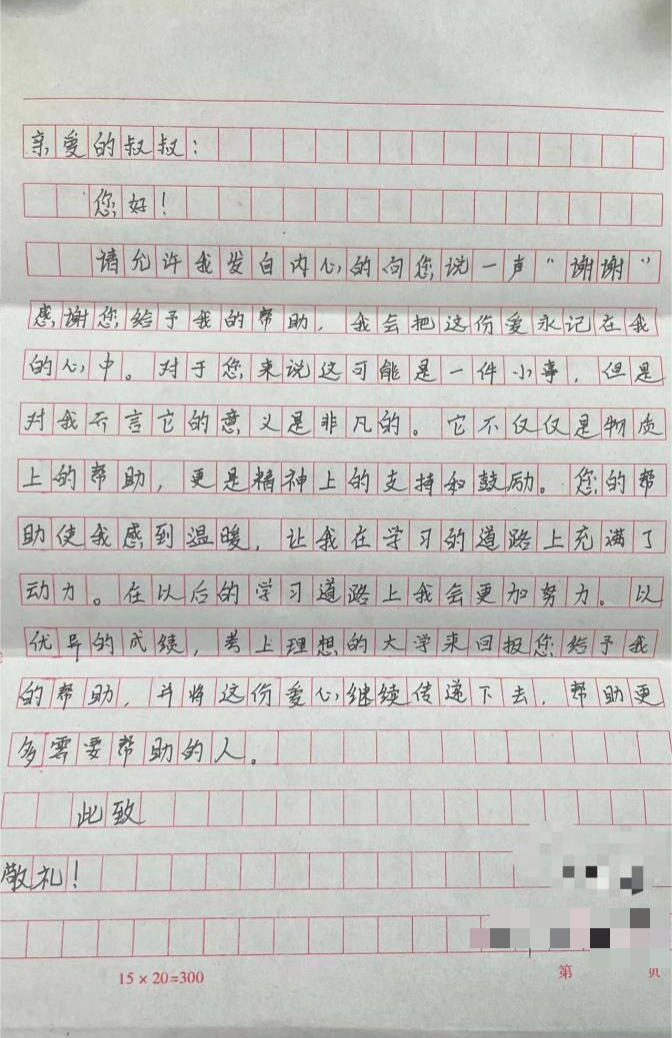 亲爱的叔叔：
您好！
请允许我发自内心的向您说一声“谢谢”
感谢您给予我的帮助，我会把这份爱永记在我
的心中。对于您来说这可能是一件小事，但是
对我而言它的意义是非凡的。它不仅仅是物质
上的帮助，更是精神上的支持和鼓励。您的帮
助使我感到温暖，让我在学习的道路上充满了
动力。在以后的学习道路上我会更加努力。以
优异的成绩，考上理想的大学来回报您给予我
的帮助，并将这份爱心继续传递下去，帮助更
多需要帮助的人。
此致
敬礼！
15×20=300 第 页